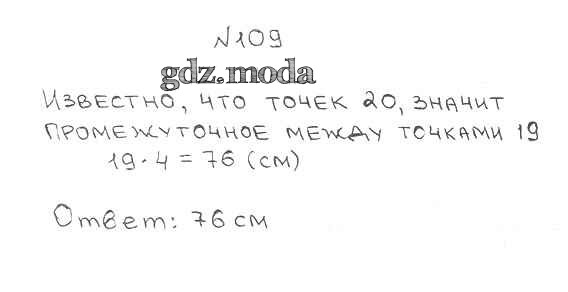 №109
gdz.moda
ИЗВЕСТНО, ЧТО ТОЧЕК 20, ЗНАЧИТ
ПРОМЕЖУТОЧНОЕ МЕЖДУ ТОЧКАМИ 19
19 · 4 = 76 (см)
Ответ: 76 см